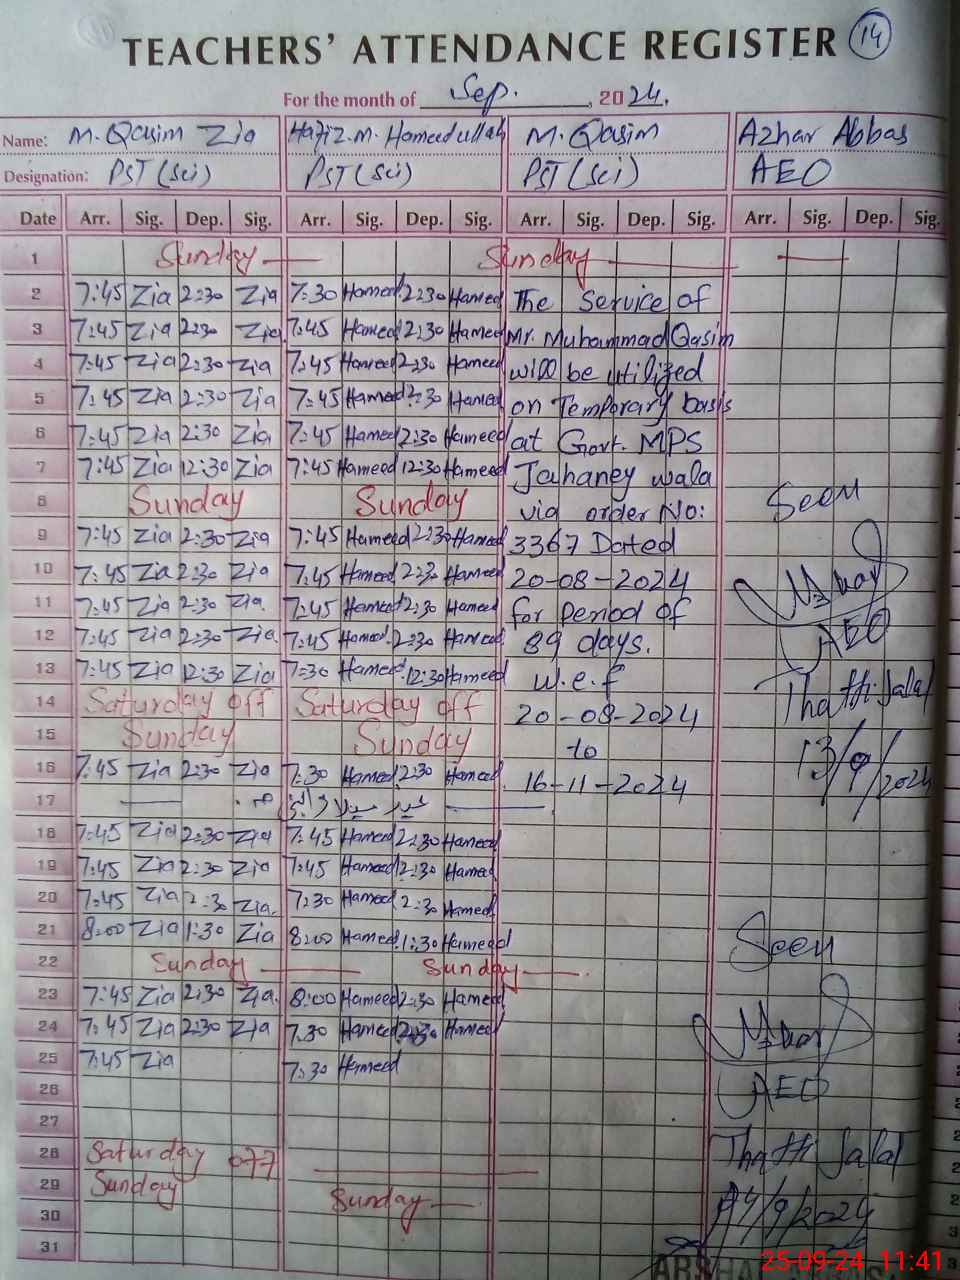 14
TEACHERS' ATTENDANCE REGISTER
For the month of Sep. , 2024.
Name: M. Qasim Zia Hafiz.M. Hameedullah M. Qasim Azhar Abbas
Designation: PST (Sci) PST (Sci) PST (Sci) AEO
Date Arr. Sig. Dep. Sig. Arr. Sig. Dep. Sig. Arr. Sig. Dep. Sig. Arr. Sig. Dep. Sig.
1 Sunday Sunday
2 7:45 Zia 2:30 Zia 7:30 Hameed 2:30 Hameed The Service of
3 7:45 Zia 2:30 Zia 7:45 Hameed 2:30 Hameed Mr. Muhammad Qasim
4 7:45 Zia 2:30 Zia 7:45 Hameed 2:30 Hameed will be utilized
5 7:45 Zia 2:30 Zia 7:45 Hameed 2:30 Hameed on Temporary basis
6 7:45 Zia 2:30 Zia 7:45 Hameed 2:30 Hameed at Govt. MPS
7 7:45 Zia 12:30 Zia 7:45 Hameed 12:30 Hameed Jahaney wala
8 Sunday Sunday via order No: Seen
9 7:45 Zia 2:30 Zia 7:45 Hameed 2:30 Hameed 3367 Dated
10 7:45 Zia 2:30 Zia 7:45 Hameed 2:30 Hameed 20-08-2024 Azhar
11 7:45 Zia 2:30 Zia. 7:45 Hameed 2:30 Hameed for period of
12 7:45 Zia 2:30 Zia. 7:45 Hameed. 2:30 Hameed 89 days. AEO
13 7:45 Zia 12:30 Zia 7:30 Hameed. 12:30 Hameed w.e.f Thatthi Jalal
14 Saturday off Saturday off 20-08-2024
15 Sunday Sunday to 13/9/2024
16 7:45 Zia 2:30 Zia 7:30 Hameed 2:30 Hameed 16-11-2024
17 عید میلاد النبی
18 7:45 Zia 2:30 Zia 7:45 Hameed 2:30 Hameed
19 7:45 Zia 2:30 Zia 7:45 Hameed 2:30 Hameed
20 7:45 Zia 2:30 Zia. 7:30 Hameed 2:30 Hameed
21 8:00 Zia 1:30 Zia 8:00 Hameed. 1:30 Hameed Seen
22 Sunday Sunday
23 7:45 Zia 2:30 Zia. 8:00 Hameed 2:30 Hameed
24 7:45 Zia 2:30 Zia 7:30 Hameed 2:30 Hameed Azhar
25 7:45 Zia 7:30 Hameed
26 AEO
27
28 Saturday off Thatthi Jalal
29 Sunday Sunday
30 24/9/2024
31
25-09-24 11:41